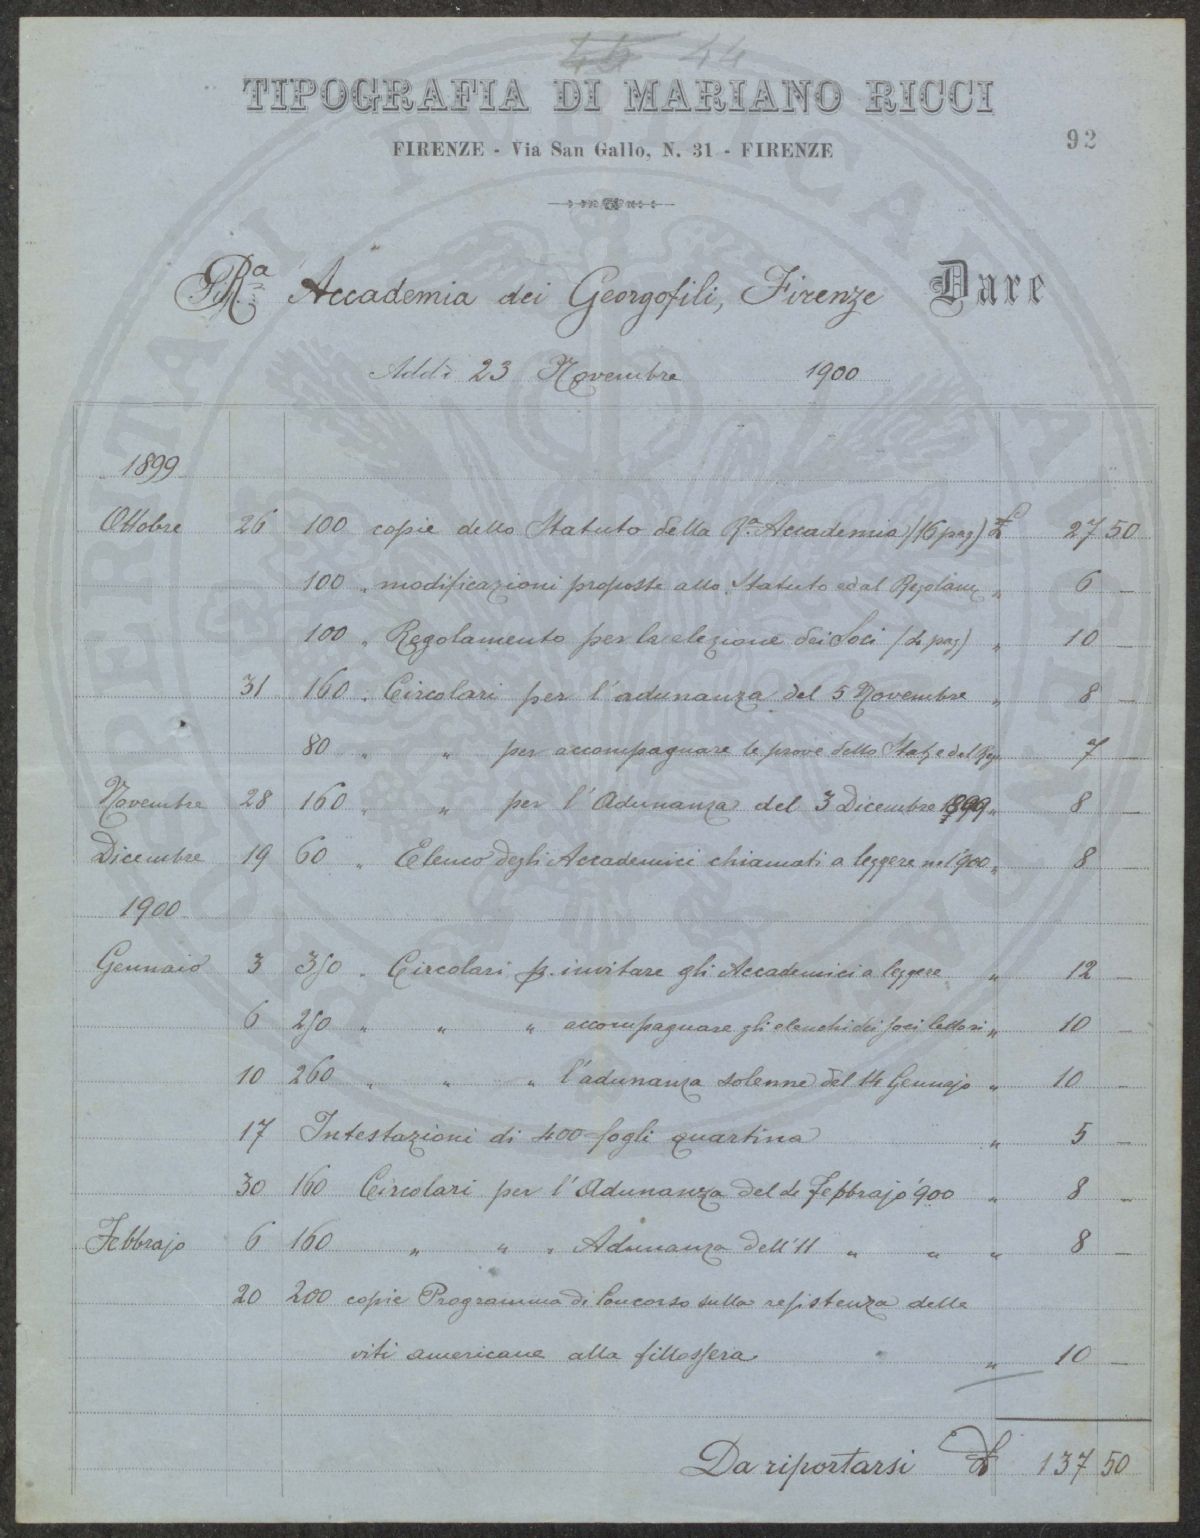 45 44
TIPOGRAFIA DI MARIANO RICCI
FIRENZE - Via San Gallo, N. 31 - FIRENZE
92
Rª Accademia dei Georgofili, Firenze Dare
Addì 23 Novembre 1900
1899
Ottobre 26 100 copie dello Statuto della Rª Accademia (16 pag) £ 27 50
100 " modificazioni proposte allo Statuto ed al Regolam " 6 —
100 " Regolamento per la elezione dei Soci (4 pag) " 10 —
31 160 " Circolari per l'adunanza del 5 Novembre " 8 —
80 " " per accompagnare le prove dello Stat. e del Reg. 7 —
Novembre 28 160 " " per l'Adunanza del 3 Dicembre 1899 " 8 —
Dicembre 19 60 " Elenco degli Accademici chiamati a leggere nel 900 " 8 —
1900
Gennaio 3 350 " Circolari p. invitare gli Accademici a leggere " 12 —
6 250 " " " accompagnare gli elenchi dei soci lettori " 10 —
10 260 " " " l'adunanza solenne del 14 Gennajo " 10 —
17 Intestazioni di 400 fogli quartina " 5 —
30 160 Circolari per l'Adunanza del 4 Febbrajo 900 " 8 —
Febbrajo 6 160 " " " Adunanza dell'11 " " " 8 —
20 200 copie Programma di Concorso sulla resistenza delle
viti americane alla fillossera " 10 —
Da riportarsi £ 137 50